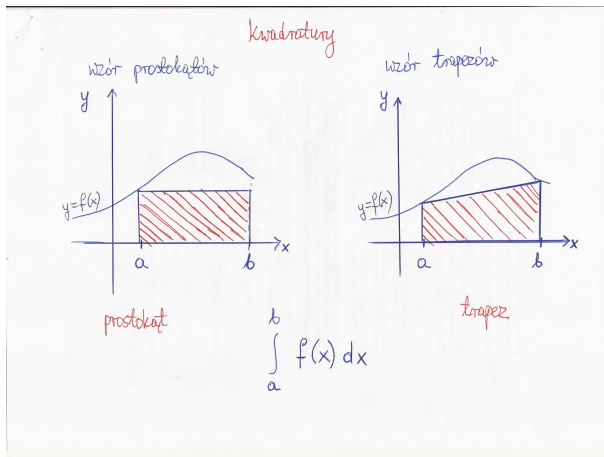 kwadratury
wzór prostokątów
y
y=f(x)
a
b
x
prostokąt
wzór trapezów
y
y=f(x)
a
b
x
trapez
b
∫ f(x) dx
a